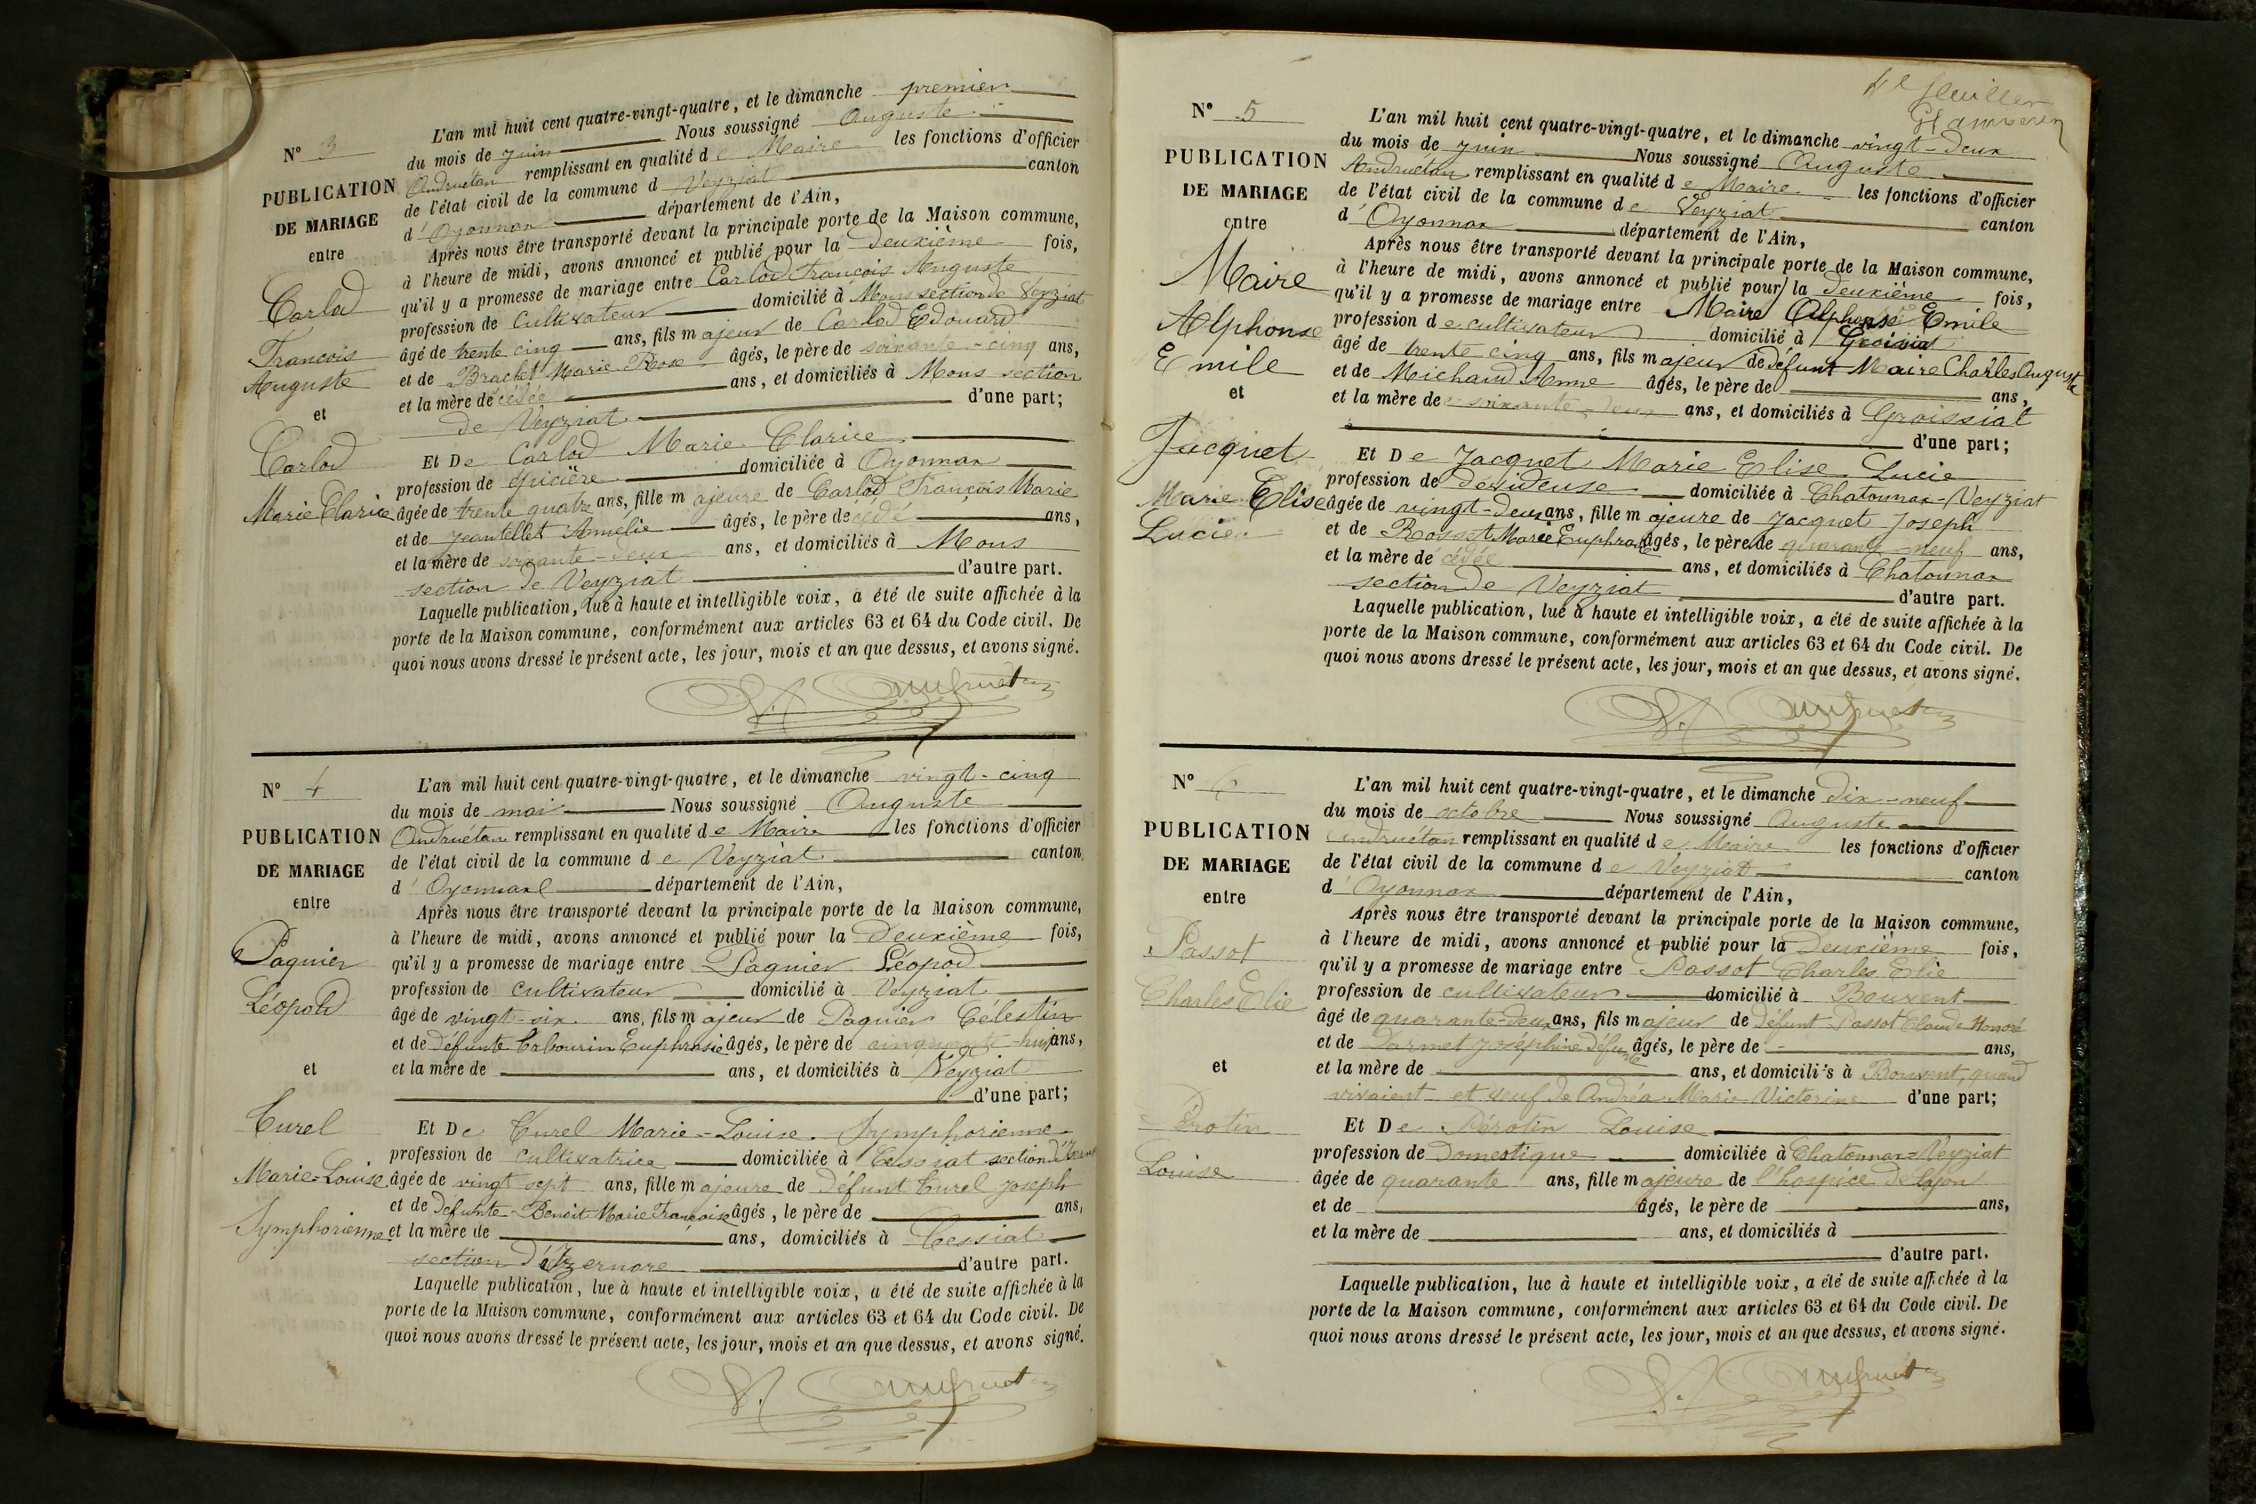 N° 3
PUBLICATION
DE MARIAGE
entre
Carlod
François
Auguste
et
Carlod
Marie Clarice
L'an mil huit cent quatre-vingt-quatre, et le dimanche premier
du mois de juin Nous soussigné Auguste
Andruétan remplissant en qualité de Maire les fonctions d'officier
de l'état civil de la commune d Veyziat canton
d'Oyonnax département de l'Ain,
Après nous être transporté devant la principale porte de la Maison commune,
à l'heure de midi, avons annoncé et publié pour la deuxième fois,
qu'il y a promesse de mariage entre Carlod François Auguste
profession de cultivateur domicilié à Mons section de Veyziat
âgé de trente cinq ans, fils majeur de Carlod Edouard
et de Brachet Marie Rose âgés, le père de soixante-cinq ans,
et la mère décédée ans, et domiciliés à Mons section
de Veyziat d'une part;
Et De Carlod Marie Clarice
profession de épicière domiciliée à Oyonnax
âgée de trente quatre ans, fille majeure de Carlod François Marie
et de Jeantellet Amélie âgés, le père décédé ans,
et la mère de soixante-deux ans, et domiciliés à Mons
section de Veyziat d'autre part.
Laquelle publication, lue à haute et intelligible voix, a été de suite affichée à la
porte de la Maison commune, conformément aux articles 63 et 64 du Code civil. De
quoi nous avons dressé le présent acte, les jour, mois et an que dessus, et avons signé.
N° 4
PUBLICATION
DE MARIAGE
entre
Paquier
Léopold
et
Curel
Marie-Louise
Symphorienne
L'an mil huit cent quatre-vingt-quatre, et le dimanche vingt-cinq
du mois de mai Nous soussigné Auguste
Andruétan remplissant en qualité de Maire les fonctions d'officier
de l'état civil de la commune de Veyziat canton
d'Oyonnax département de l'Ain,
Après nous être transporté devant la principale porte de la Maison commune,
à l'heure de midi, avons annoncé et publié pour la deuxième fois,
qu'il y a promesse de mariage entre Paquier Léopod
profession de cultivateur domicilié à Veyziat
âgé de vingt-six ans, fils majeur de Paquier Célestin
et de défunte Carbourin Euphrasie âgés, le père de cinquante-huit ans,
et la mère de ans, et domiciliés à Veyziat
d'une part;
Et De Curel Marie-Louise Symphorienne
profession de cultivatrice domiciliée à Cessiat section d'Izern
âgée de vingt sept ans, fille majeure de défunt Curel Joseph
et de défunte Benoit Marie Françoise âgés, le père de ans,
et la mère de ans, domiciliés à Cessiat
section d'Izernore d'autre part.
Laquelle publication, lue à haute et intelligible voix, a été de suite affichée à la
porte de la Maison commune, conformément aux articles 63 et 64 du Code civil. De
quoi nous avons dressé le présent acte, les jour, mois et an que dessus, et avons signé.
4e feuillet
N° 5
PUBLICATION
DE MARIAGE
entre
Maire
Alphonse
Emile
et
Jacquet
Marie Elise
Lucie
L'an mil huit cent quatre-vingt-quatre, et le dimanche vingt-deux
du mois de juin Nous soussigné Auguste
Andruétan remplissant en qualité de Maire les fonctions d'officier
de l'état civil de la commune de Veyziat canton
d'Oyonnax département de l'Ain,
Après nous être transporté devant la principale porte de la Maison commune,
à l'heure de midi, avons annoncé et publié pour la deuxième fois,
qu'il y a promesse de mariage entre Maire Alphonse Emile
profession de cultivateur domicilié à Groissiat
âgé de trente cinq ans, fils majeur de défunt Maire Charles Auguste
et de Michaud Anne âgés, le père de ans,
et la mère de soixante-deux ans, et domiciliés à Groissiat
d'une part;
Et De Jacquet Marie Elise Lucie
profession de dévideuse domiciliée à Chatonnax-Veyziat
âgée de vingt-deux ans, fille majeure de Jacquet Joseph
et de Rousset Marie Euphrasie âgés, le père de quarante-neuf ans,
et la mère décédée ans, et domiciliés à Chatonnax
section de Veyziat d'autre part.
Laquelle publication, lue à haute et intelligible voix, a été de suite affichée à la
porte de la Maison commune, conformément aux articles 63 et 64 du Code civil. De
quoi nous avons dressé le présent acte, les jour, mois et an que dessus, et avons signé.
N° 6
PUBLICATION
DE MARIAGE
entre
Passot
Charles Elie
et
Pérotin
Louise
L'an mil huit cent quatre-vingt-quatre, et le dimanche dix-neuf
du mois de octobre Nous soussigné Auguste
Andruétan remplissant en qualité de Maire les fonctions d'officier
de l'état civil de la commune de Veyziat canton
d'Oyonnax département de l'Ain,
Après nous être transporté devant la principale porte de la Maison commune,
à l'heure de midi, avons annoncé et publié pour la deuxième fois,
qu'il y a promesse de mariage entre Passot Charles Elie
profession de cultivateur domicilié à Bouvent
âgé de quarante-deux ans, fils majeur de défunt Passot Claude Honoré
et de Darmet Joséphine défunte âgés, le père de ans,
et la mère de ans, et domiciliés à Bouvent, quand
vivaient et veuf de Andréa Marie Victorine d'une part;
Et De Pérotin Louise
profession de domestique domiciliée à Chatonnax-Veyziat
âgée de quarante ans, fille majeure de l'hospice de Lyon
et de âgés, le père de ans,
et la mère de ans, et domiciliés à
d'autre part.
Laquelle publication, lue à haute et intelligible voix, a été de suite affichée à la
porte de la Maison commune, conformément aux articles 63 et 64 du Code civil. De
quoi nous avons dressé le présent acte, les jour, mois et an que dessus, et avons signé.